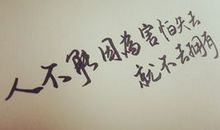 人不要因為害怕失去
就不去拥有